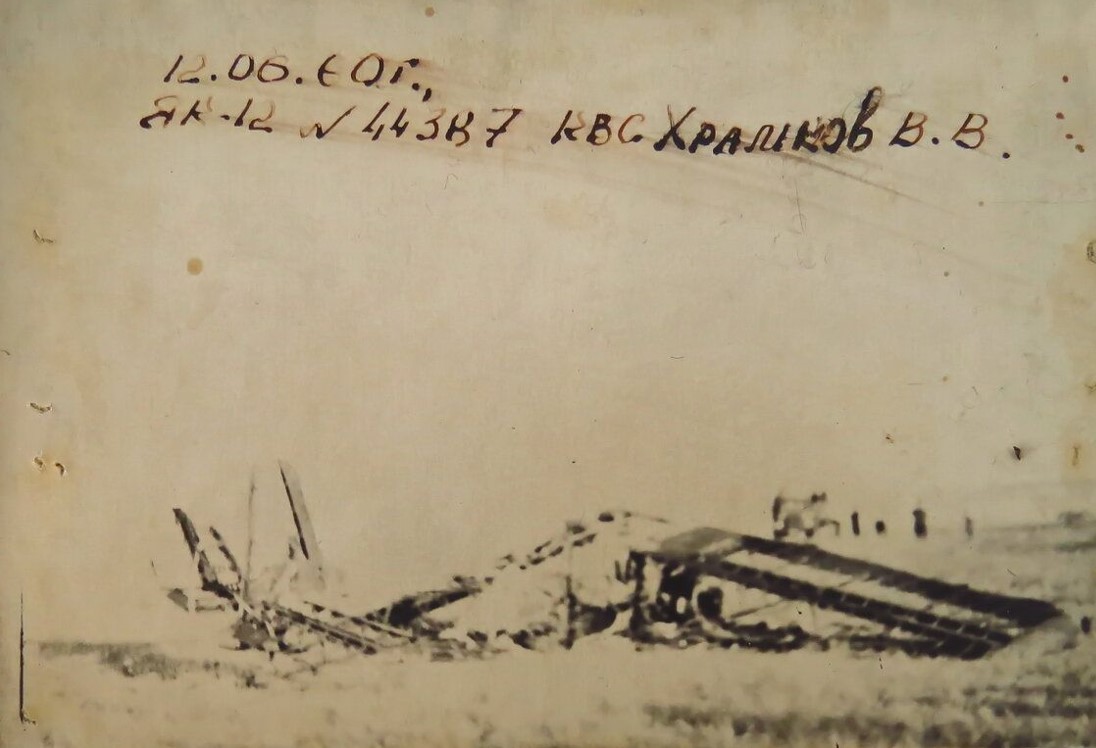 12.06.60г.,
ЯК-12 N 44387 КВС Храмков В.В.